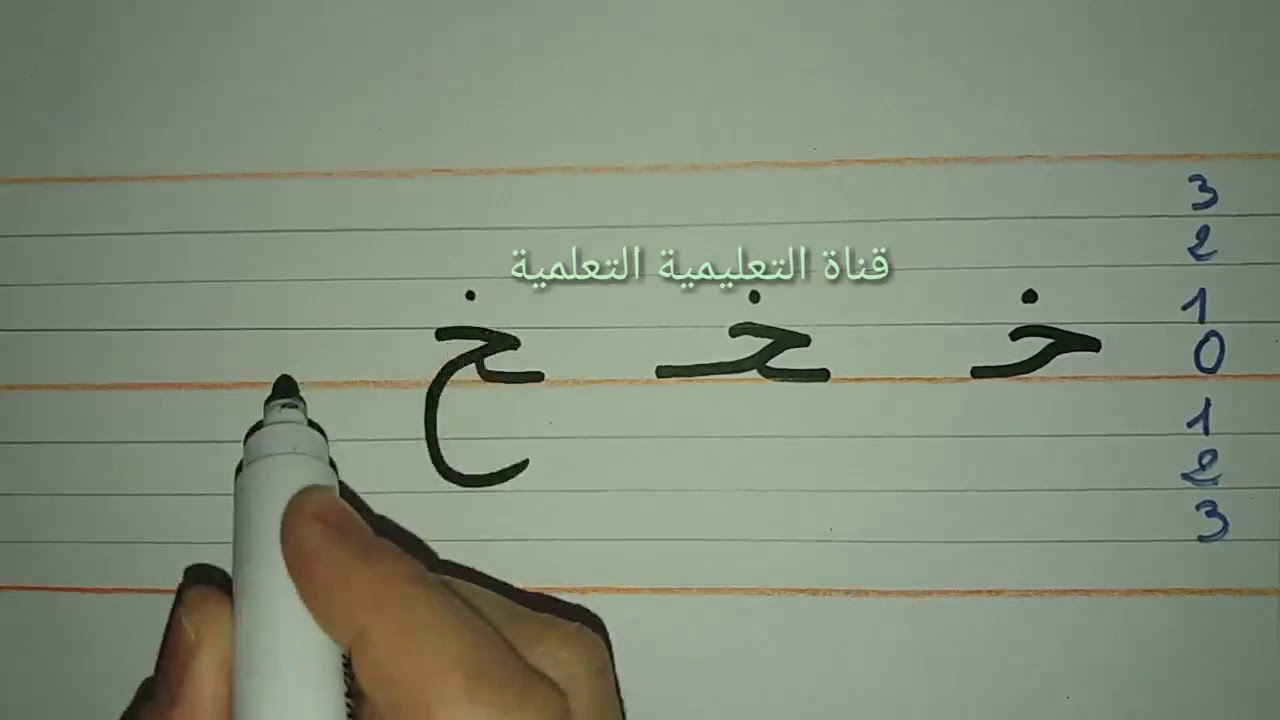 3
2
قناة التعليمية التعلمية
1
خـ ـخـ ـخ
0
1
2
3